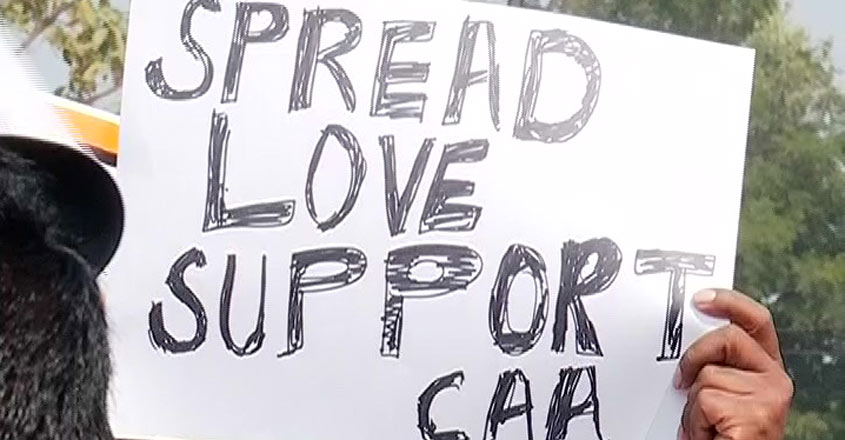 SPREAD
LOVE
SUPPORT
CAA